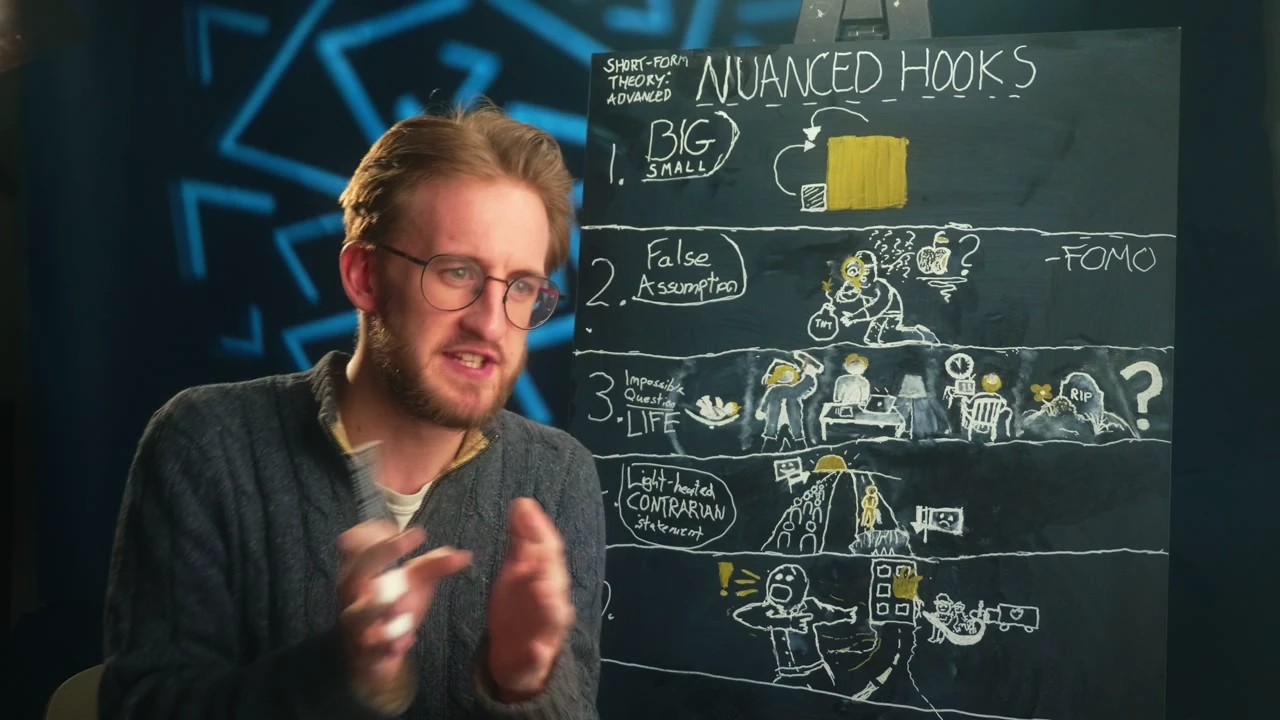 SHORT-FORM
THEORY:
ADVANCED
NUANCED HOOKS
1. BIG
SMALL
2. False
Assumption
TNT
? ? ? ?
?
-FOMO
3. Impossible
Question
LIFE
RIP
?
Light-hearted
CONTRARIAN
statement
!